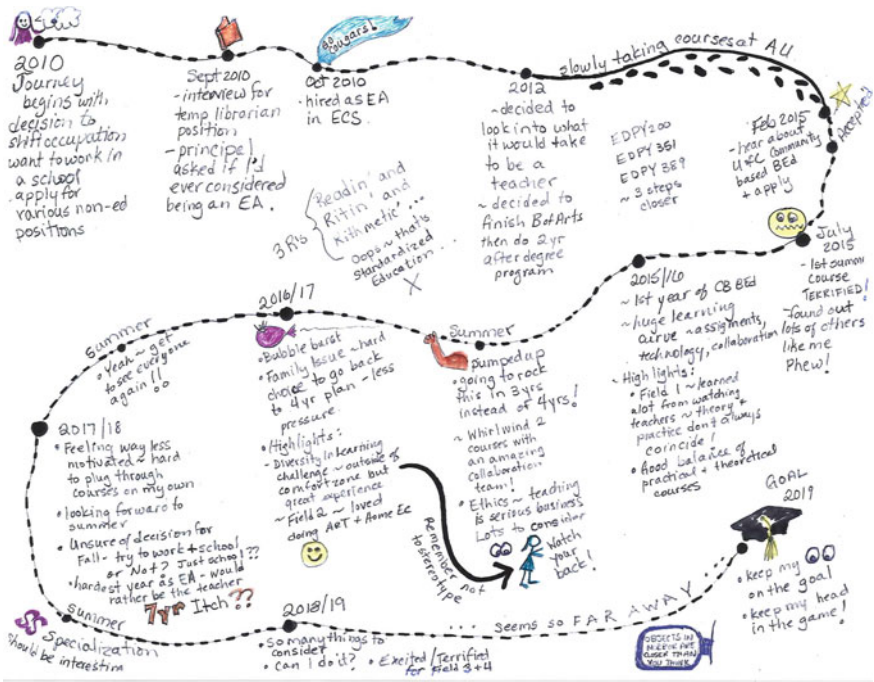 2010
Journey
begins with
decision to
shift occupation
want to work in
a school
. apply for
various non-ed
positions
Sept 2010
- interview for
temp librarian
position
- principal
asked if I'd
ever considered
being an EA.
go Cougars!
Oct 2010
• hired as EA
in ECS.
3 R's
Readin' and
Ritin' and
Rithmetic'...
Oops ~ that's
standardized
Education...
X
2012
~ decided to
look into what
it would take
to be a
teacher
~ decided to
finish B of Arts
then do 2yr
after degree
program
slowly taking courses at AU
EDPY 200
EDPY 351
EDPY 389
~ 3 steps
closer
Feb 2015
- hear about
U of C Community
based BEd
+ apply
Accepted
July
2015
- 1st summ
course
TERRIFIED!
- found out
lots of others
like me
Phew!
2015/16
~ 1st year of CB BEd
~ huge learning
curve ~ assignments,
technology, collaboration
~ Highlights:
• Field 1 ~ learned
alot from watching
teachers ~ theory +
practice don't always
coincide!
• Good balance of
practical + theoretical
courses
Summer
• pumped up
going to rock
this in 3yrs
instead of 4yrs!
~ Whirlwind 2
courses with
an amazing
collaboration
team!
• Ethics ~ teaching
is serious business
Lots to consider
Watch
your
back!
2016/17
• Bubble burst
• Family Issue ~ hard
choice to go back
to 4yr plan - less
pressure.
• Highlights:
- Diversity In Learning
challenge ~ outside of
comfort zone but
great experience
~ Field 2 ~ loved
doing ART + Home Ec
Remember not
to stereotype
Summer
• Yeah ~ get
to see everyone
again!!
2017/18
• Feeling way less
motivated ~ hard
to plug through
courses on my own
• looking forward to
summer
• Unsure of decision for
Fall - try to work + school
or Not? Just school!??
• hardest year as EA - would
rather be the teacher
7yr Itch ??
Summer
Specialization
should be interestim
2018/19
• So many things to
consider
• Can I do it?
• Excited/Terrified
for Field 3+4
... seems so FAR AWAY ...
GOAL
2019
• keep my
on the goal
• keep my head
in the game!
OBJECTS IN
MIRROR ARE
CLOSER THAN
YOU THINK